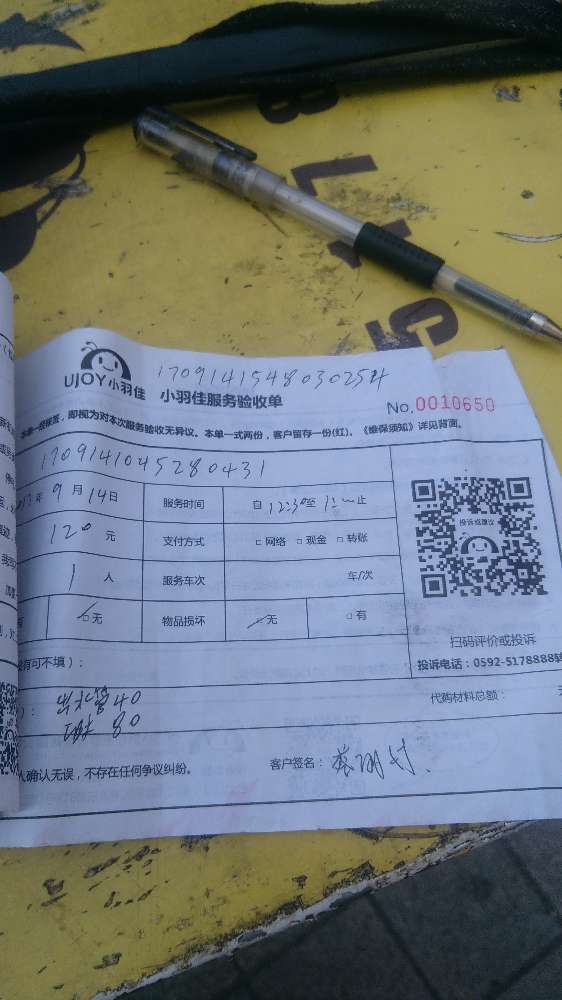 UJOY小羽佳
1709141548030254
小羽佳服务验收单
No.0010650
即视为对本次服务验收无异议。本单一式两份，客户留存一份(红)。《维保须知》详见背面。
1709141045280431
年9月14日 服务时间 自12:30至1: 止
120元 支付方式 □网络 □现金 □转账
投诉或建议
1人 服务车次 车/次
□无 物品损坏 □无 □有
扫码评价或投诉
没有可不填）：
投诉电话：0592-5178888转
40
代购材料总额：
80
人确认无误，不存在任何争议纠纷。
客户签名：